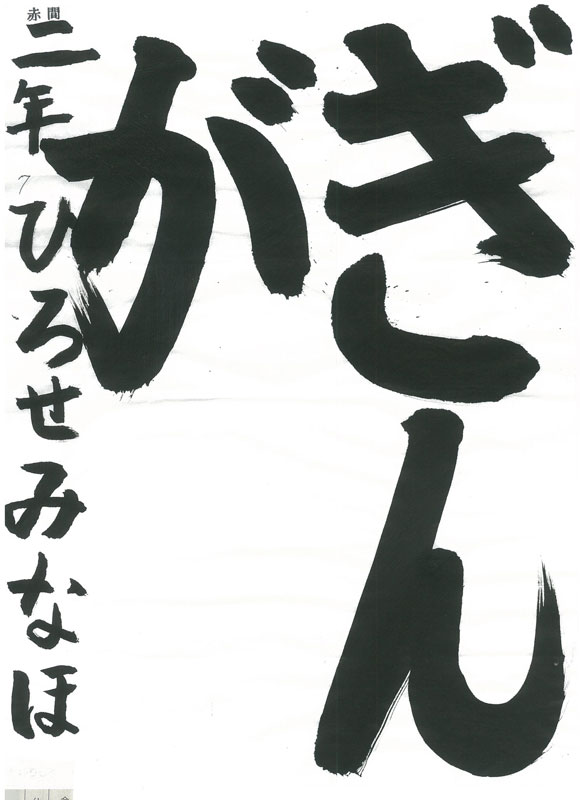 ぎん
が
二年ひろせみなほ
赤間